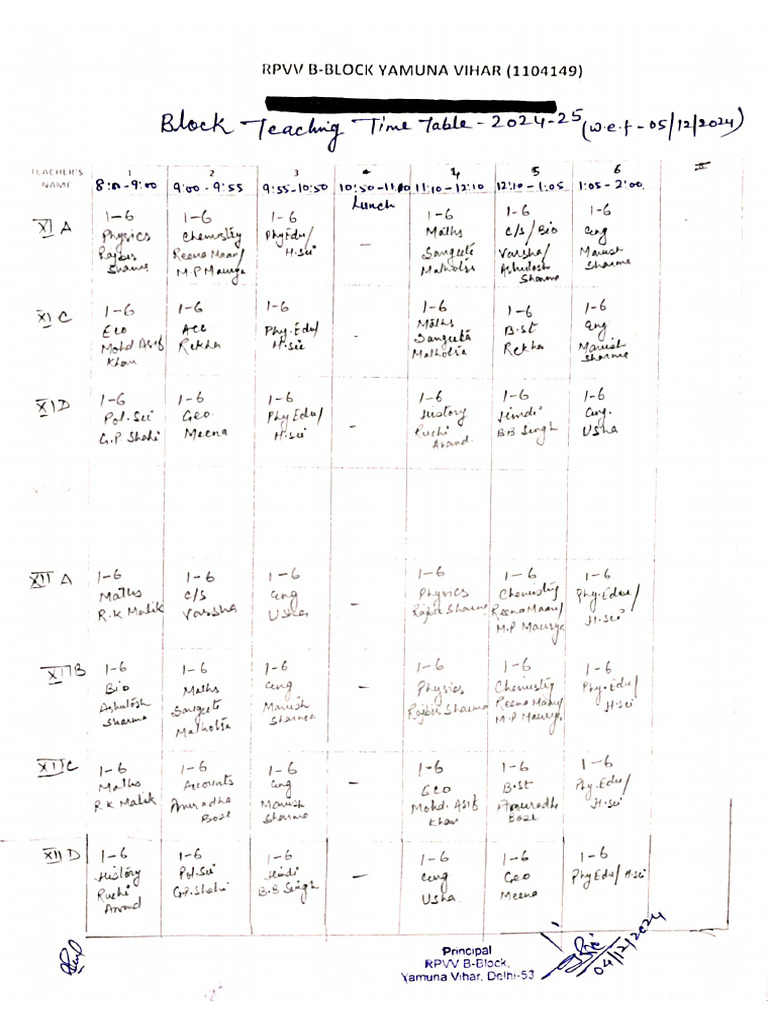 RPVV B-BLOCK YAMUNA VIHAR (1104149)
Block Teaching Time Table - 2024-25 (w.e.f - 05/12/2024)
TEACHER'S NAME 1 2 3 4 5 6
8:00-9:00 9:00-9:55 9:55-10:50 10:50-11:10 11:10-12:10 12:10-1:05 1:05-2:00
Lunch
XI A 1-6 1-6 1-6 1-6 1-6 1-6
Physics Chemistry Phy Edu/ – Maths C/S/Bio eng
Rajbir Reena Maan/ H.Sci Sangeeta Varsha/ Manish
Sharma M.P Maurya Malhotra Ashutosh Sharma
Sharma
XI C 1-6 1-6 1-6 1-6 1-6 1-6
Eco Acc Phy.Edu/ - Maths B.St eng
Mohd Asif Rekha H.Sci Sangeeta Rekha Manish
Khan Malhotra Sharma
XI D 1-6 1-6 1-6 1-6 1-6 1-6
Pol.Sci Geo Phy Edu/ – History Hindi eng.
G.P. Shahi Meena H.Sci Ruchi B B Singh Usha
Anand
XII A 1-6 1-6 1-6 1-6 1-6 1-6
Maths C/S eng – Physics Chemistry Phy.Edu/
R.K Malik Varsha Usha Rajbir Sharma Reena Maan/ H.Sci
M.P Maurya
XII B 1-6 1-6 1-6 1-6 1-6 1-6
Bio Maths eng – Physics Chemistry Phy.Edu/
Ashutosh Sangeeta Manish Rajbir Sharma Reena Maan/ H.Sci
Sharma Malhotra Sharma M.P Maurya
XII C 1-6 1-6 1-6 1-6 1-6 1-6
Maths Accounts eng – Eco B.St Phy.Edu/
R K Malik Anuradha Manish Mohd. Asif Anuradha H.Sci
Bose Sharma Khan Bose
XII D 1-6 1-6 1-6 1-6 1-6 1-6
History Pol.Sci Hindi – eng Geo Phy Edu/ H.Sci
Ruchi G.P. Shahi B.B Singh Usha Meena
Anand
Principal
RPVV B-Block,
Yamuna Vihar, Delhi-53
04/12/2024